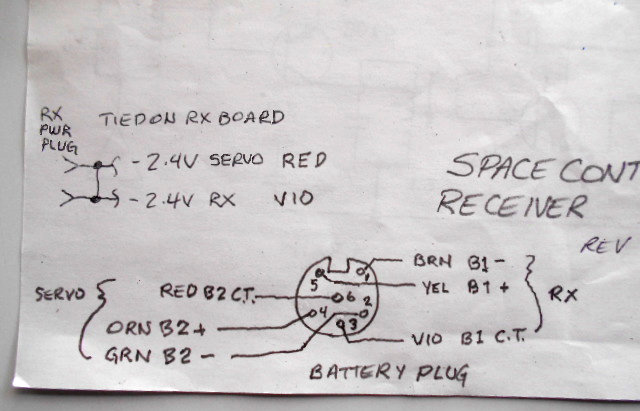 RX
PWR
PLUG
TIED ON RX BOARD
-2.4V SERVO RED
-2.4V RX VIO
SPACE CONT
RECEIVER
REV
SERVO
RED B2 C.T.
ORN B2 +
GRN B2 -
5
1
6
2
4
3
BRN B1 -
YEL B1 +
VIO B1 C.T.
RX
BATTERY PLUG